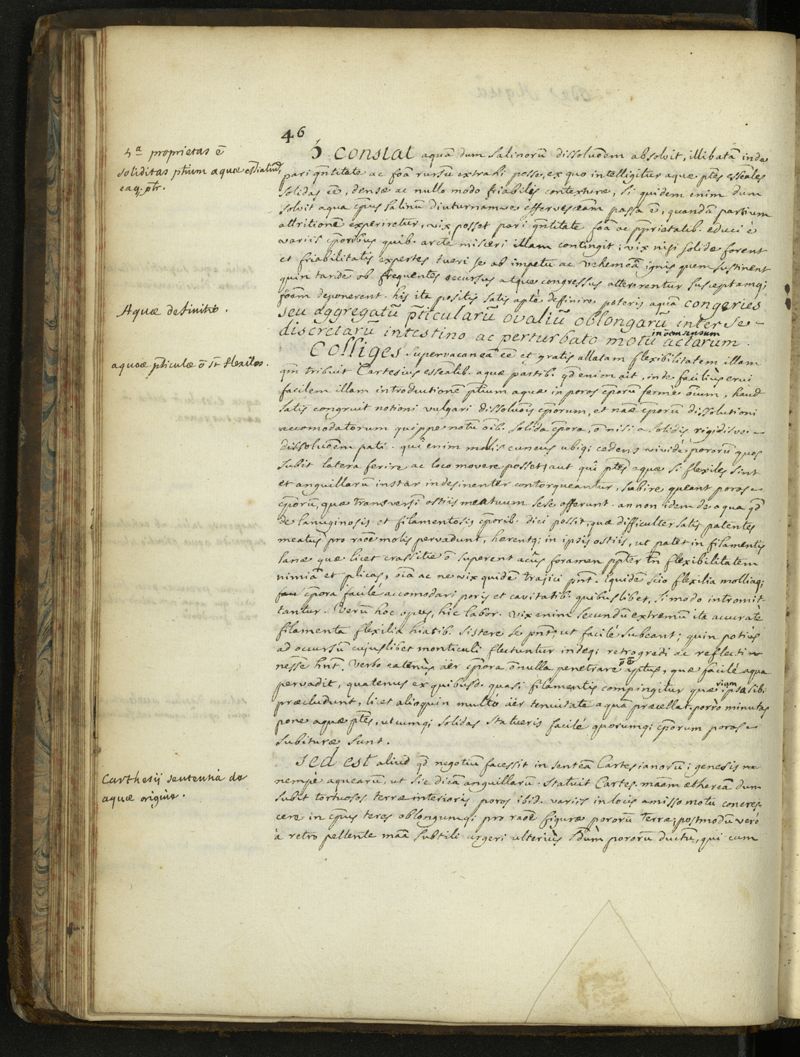 46
5ª proprietas ē
soliditas ptium aquæ eātialiū
eaq. ptr.
ó. constat aquā dum salinorū dissolvōem absolvit, illibatā inde
pari qntitate ac foā rursū extrahi posse, ex quo intelligitur aquæ ptes essēales
solidas ēē, densæ ac nullo modo friabiles contexturæ, si quidem enim dum
solvit aqua cpus salinū diuturnamve effervescēam passa ē, quandā partium
attritionē experiretur, vix posset pari qntitate foā ac pprietatib. educi è
variis cporibus quib. arctè misceri illam contingit; vix nisi solidæ forent
et friabilitatis expertes tueri se ab impetu ac vehemēā ignis quem sustinent
quin tandē ob frequentes occursus atque congressus attererentur susceptamq;
foām deponerent. his ita positis satis aptè definire poteris aquā congeries
Aquæ definitio.
seu aggregatū pticularū ovaliū oblongarū inter se
discretarū intestino ac perturbato motū in oēm sensum actarum.
Colliges. supervacaneā ēē et gratis allatam flexibilitatem illam
aquæ pticulæ ō st flexiles.
qm tribuit Cartesius essēalib. aquæ partib. qd enim ait, inde faciliùs erui
facilem illam introductionē ptium aquæ in poros cporū fermè oīum, haud
satis congruit notioni vulgari dissolvōis cporum, et naæ cporū dissolutioni
accomodatorum quippe notū oib. solida cpora, ō nisi a solidis rigidisve
dissolvōem pati. quî enim mollis cuneus ubiq; cedens vividè pororū quos
subit latera ferire ac loco movere posset; aut quî ptes aquæ si flexiles sint
et anguillarū instar indesinenter contorqueantur, subire queant poros
cporū, quæ transversi ostiis meatuum sese offerunt. an non idem de aqua qd
de lanuginosis et filamentosis cporib. dici possit, quæ difficulter satis patentes
meatus pro raōe molis pervadunt, herentq; in ipsis ostiis, ut patet in filamentis
lanæ quæ licet crassitie ō superent acûs foramen ppter tn flexibilitatem
nimiā et plicas, oīa ac ne vix quidē trajici pnt. equidē scio flexilia molliaq;
cpora facilè accomodari poris et cavitatib. quibuslibet, si modo intromit
tantur. Verū hoc opus, hic labor. vix enim secundū extremū ita accuratè
filamenta flexilia hiatib. sistere se pnt, ut facilè subeant; quin potiùs
ad occursū cujuslibet monticuli flectuntur indeq; retrogredi ac reflecti
nēsse hnt. Verbo eatenùs àer cpora ōnulla penetrare ō aptus, quæ facilè aqua
pervadit, quatenus ex quibusd. quasi filamentis compingitur quæ viam ipsæ sib.
præcludunt, licet alioquin multo àer tenuitate aquā præcellat. porrò minutas
pone aquæ ptes, utcumq; solidas statueris facilè quorumq; cporum poros
subituræ sunt.
Sed est aliud qd negotiū facessit in sentēā Cartesianorū; genesis na
Carthesij sententia de
aquæ origine.
nempè aquearū, ut sic dicā anguillarū. statuit Cartes. maām ethereā dum
subit tortuosos terræ interioris poros ibid. variis in locis amisso motū concres
cere in cpus teres oblongumq; pro raōe figuræ pororū terræ; postmodū verò
à retrò pellente maā subtili urgeri ulteriùs sdùm pororū ductū, qui cum